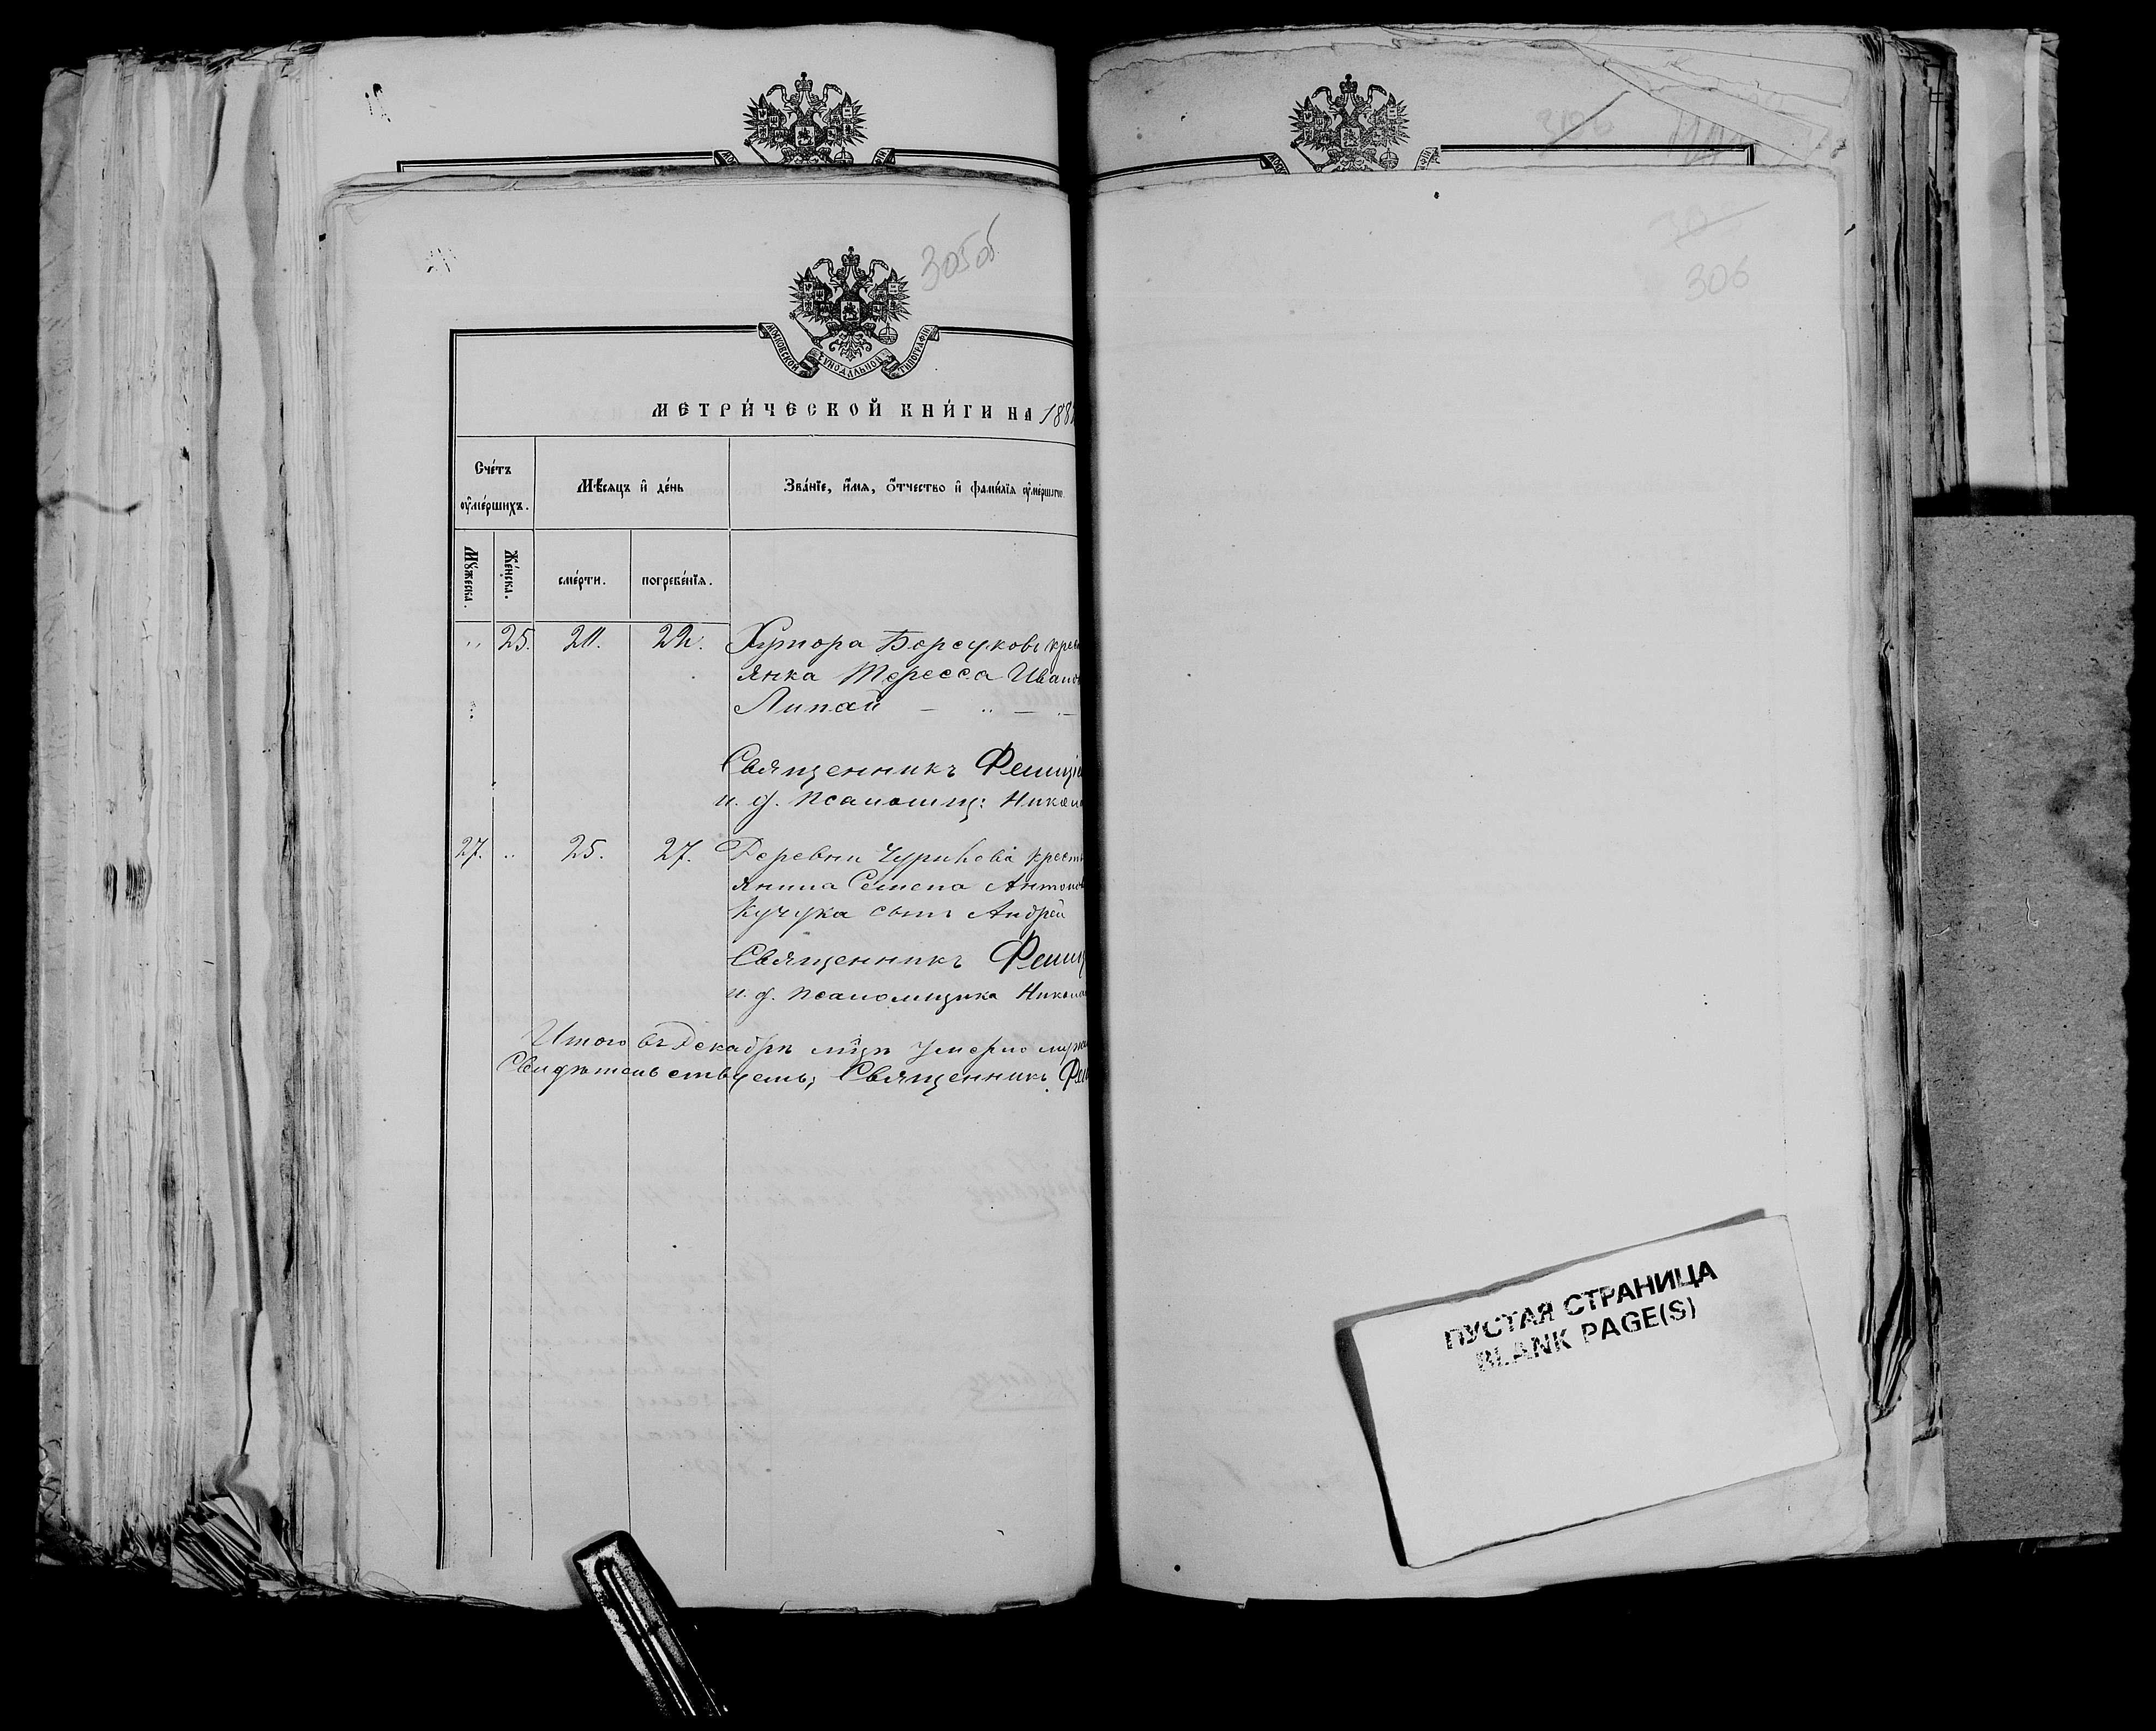 305об
МОСКОВСКОЙ СѴНОДАЛЬНОЙ ТИПОГРАФІИ
МЕТРИ́ЧЕСКОЙ КНИ́ГИ НА 188
Сче́тъ ᲂу҆ме́ршихъ.
Мѣ́сяцъ и҆ де́нь
Зва́нїе, и҆́мя, ѻ҆́тчество и҆ фами́лїя ᲂу҆ме́ршагѡ.
Мꙋ́жеска.
Же́нска.
сме́рти.
погребе́нїя.
„ 25. 20. 22. Хутора Борсуковъ крест
янка Тересса Иванов
Липай
Священникъ
и. д. псаломщ: Никол
27. „ 25. 27. Деревни Чурилова крест
янина Семена Антонов
Кучука сынъ Андрей
Священникъ
и. д. псаломщика Никола
Итого въ Декабрѣ мцѣ умерло муж
Свидѣтельствуемъ, Священникъ
306
306
ПУСТАЯ СТРАНИЦА
BLANK PAGE(S)